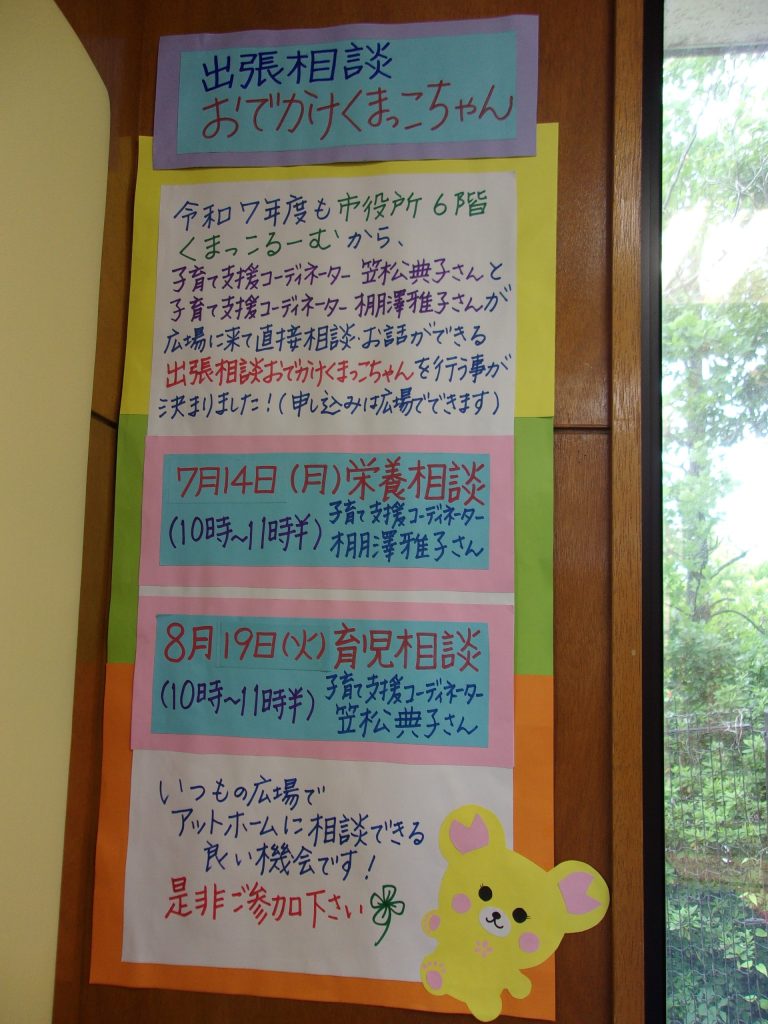 出張相談
おでかけくまっこちゃん
令和7年度も市役所6階
くまっこるーむから、
子育て支援コーディネーター 笠松典子さんと
子育て支援コーディネーター 棚澤雅子さんが
広場に来て直接相談・お話ができる
出張相談おでかけくまっこちゃんを行う事が
決まりました!(申し込みは広場でできます)
7月14日(月)栄養相談
(10時~11時半)子育て支援コーディネーター
棚澤雅子さん
8月19日(火)育児相談
(10時~11時半)子育て支援コーディネーター
笠松典子さん
いつもの広場で
アットホームに相談できる
良い機会です!
是非ご参加下さい